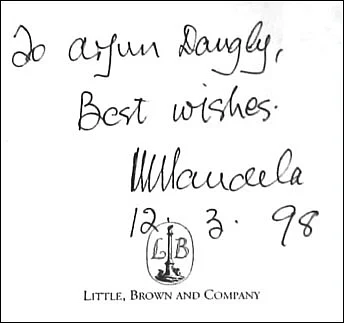 To Arjun Dangly,
Best wishes.
NMandela
12. 3. 98
L B
LITTLE, BROWN AND COMPANY